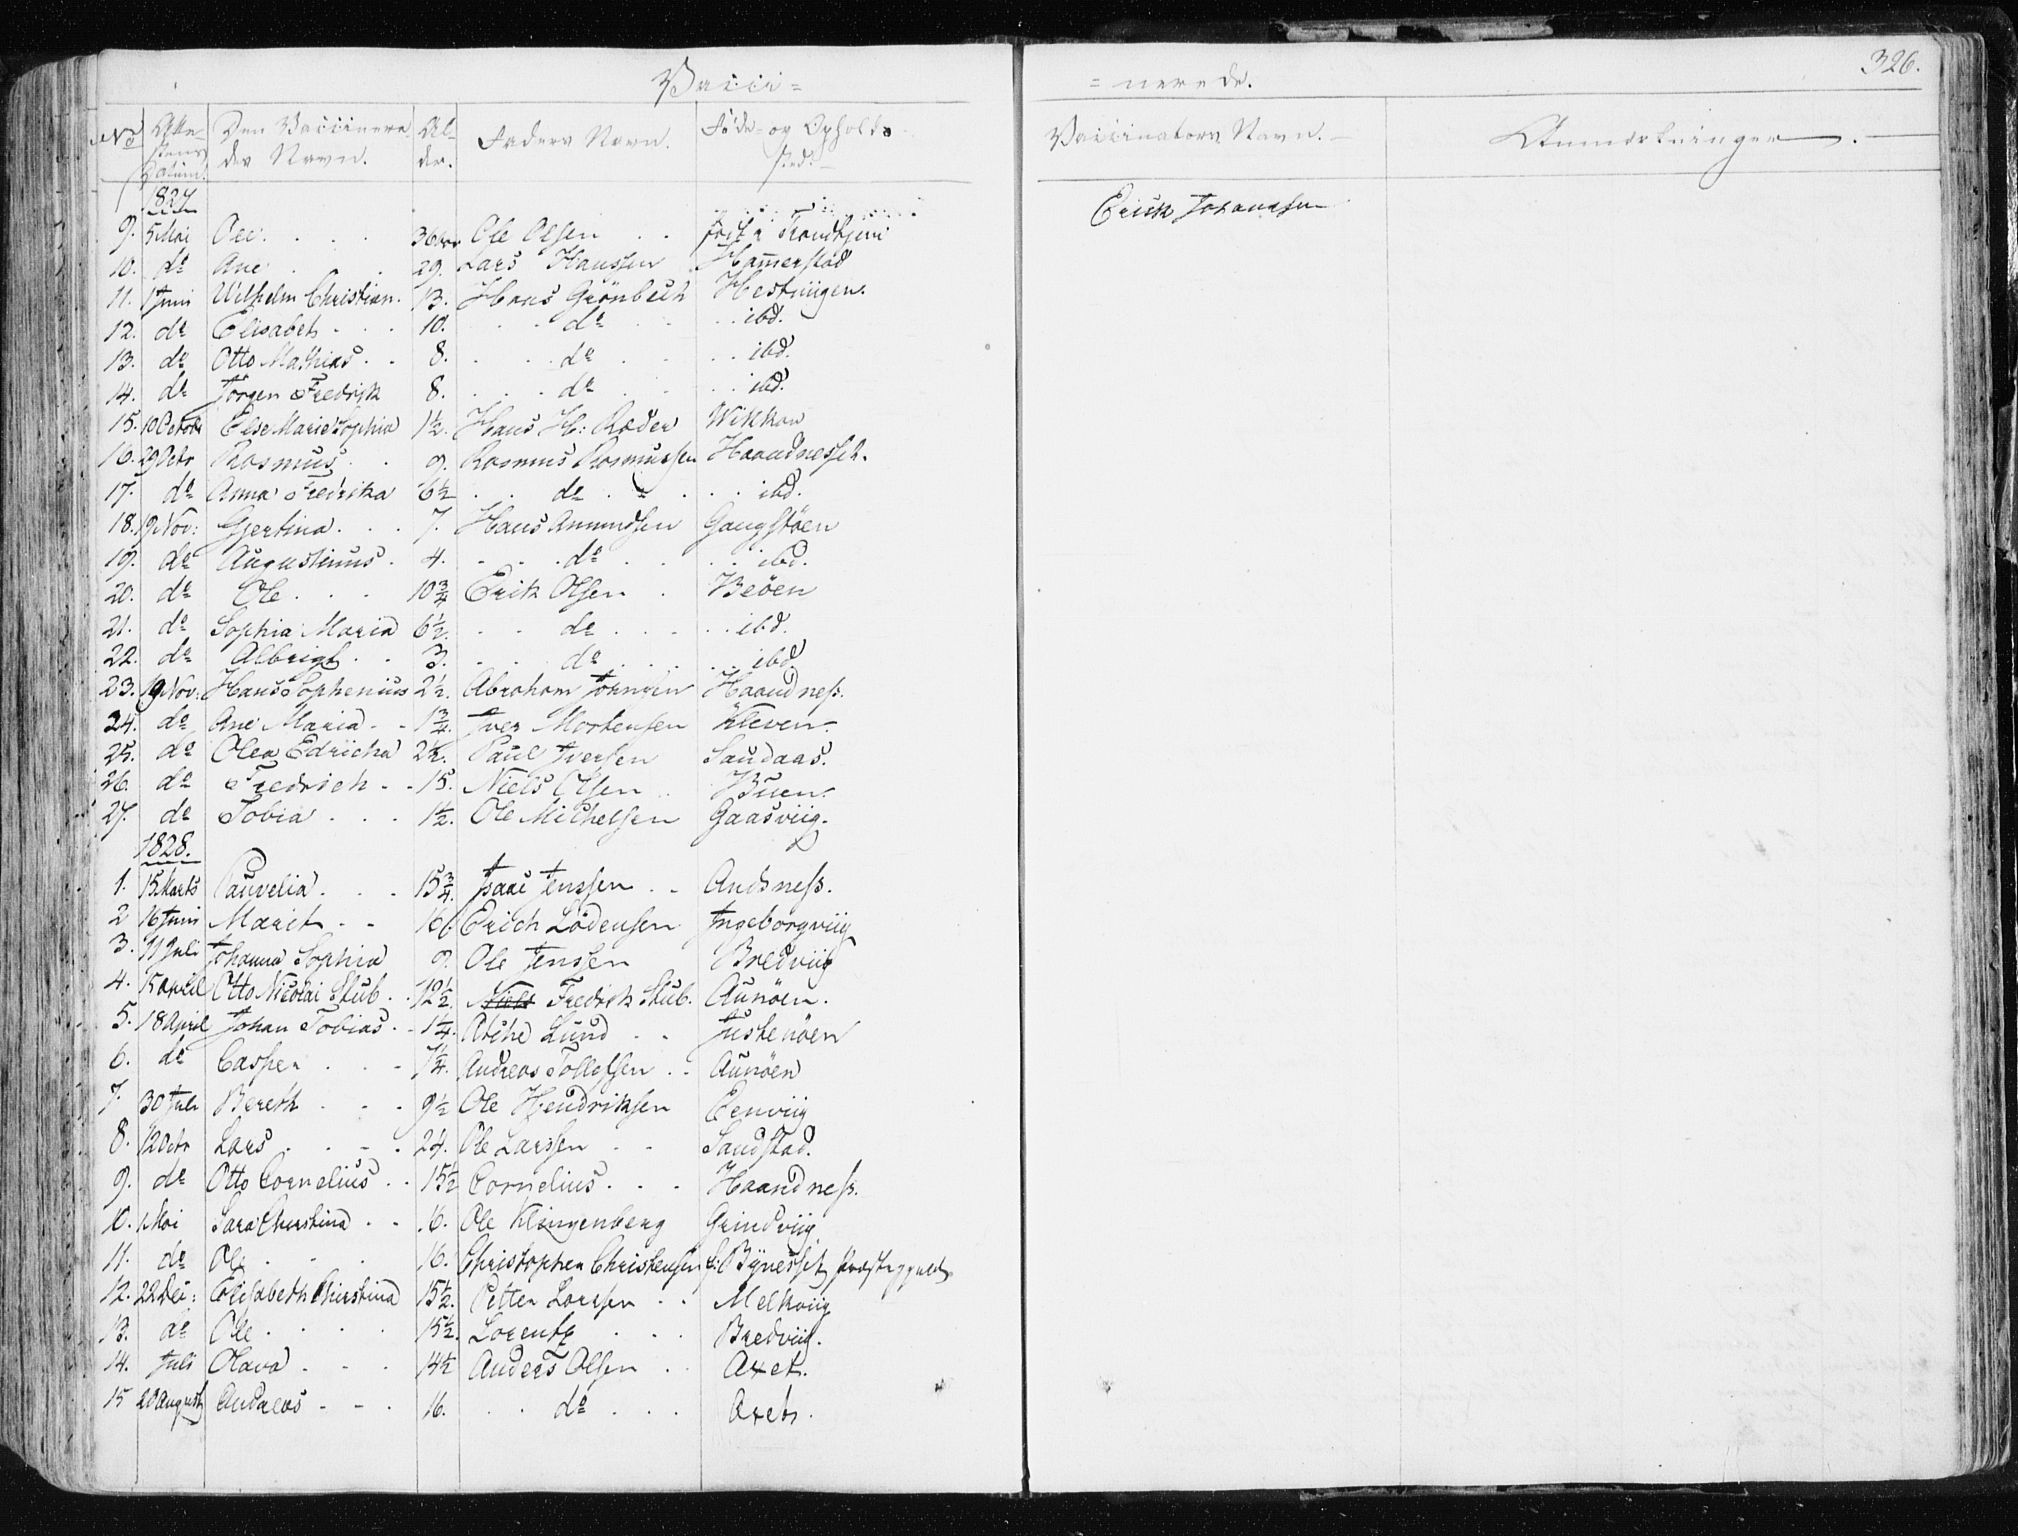 Vacci = = nerede. 326.
No Attestens Datum. Den Vaccineredes Navn. Alder. Faders Navn. Føde- og Opholdssted. Vaccinatørs Navn. Anmærkninger.
1827
9. 5 Mai Ole 36 Ole Olsen Trondhjem Erick Johansen
10. do Ane 29. Lars Hanssen Hamerstad
11. 1 Juni Wilhelm Christian. 13. Hans Grönbech Hestviigen.
12. do Elisabet 10. do ibd.
13. do Otto Mathias 8. do ibd.
14. do Jörgen Fredrik 8. do ibd.
15. 10 Octobr Else Marie Sophia 1½. Hans H: Röder Wikkan
16. 29 Octr Rasmus 9. Rasmus Rasmussen Haandnesset.
17. do Anna Fredrika 6½ do ibd.
18. 19 Nov: Gjertina 7. Hans Amundsen Gangstöen
19. do Augustinus 4. do ibd.
20. do Ole 10¾ Erik Olsen Beöen
21. do Sophia Maria 6½. do ibd.
22. do Albrigt 3. do ibd
23. 19 Nov: Hans Sophenius 2½. Abraham Johnsen Haandness.
24. do Ane Maria 1¾. Iver Mortensen Kleven.
25. do Olea Edricka 2½. Paul Iversen Sandaas.
26. do Fredrich 15. Niels Olsen Buen.
27. do Tobia 1½. Ole Michelsen Gaasviig.
1828.
1. 15 Marts Paurelia 15¾. Isaac Jenssen Andsness.
2 16 Juni Marit 16. Erich Lödensen Ingeborgviig
3. 11 Juli Johanna Sophia 9. Ole Jenssen Bredviig
4. 15 April Otto Nicolai Stub 12½. Niels Fredrik Stub. Aunöen.
5. 18 April Johan Tobias 1¼. Atche Lund Justenöen
6. do Casper 1¼. Andreas Tollefsen Aunöen
7. 30 Juli Bereth 9½ Ole Hendriksen Eenviig
8. 12 Octr Lars 24. Ole Larssen Sandstad.
9. do Otto Cornelius 15½ Cornelius Haandness.
10. 1 Mai Sara Christina 16. Ole Klingenberg Grindviig
11. do Ole 16. Christopher Christensen f: Bynesset Præstegjeld
12. 22 Dec: Elisabeth Christina 15½. Petter Larssen Melkviig
13. do Ole 15½. Lorentz Bredviig.
14. Juli Olava 14½ Anders Olsen Axet.
15 20 August Andreas 16. do Axet.